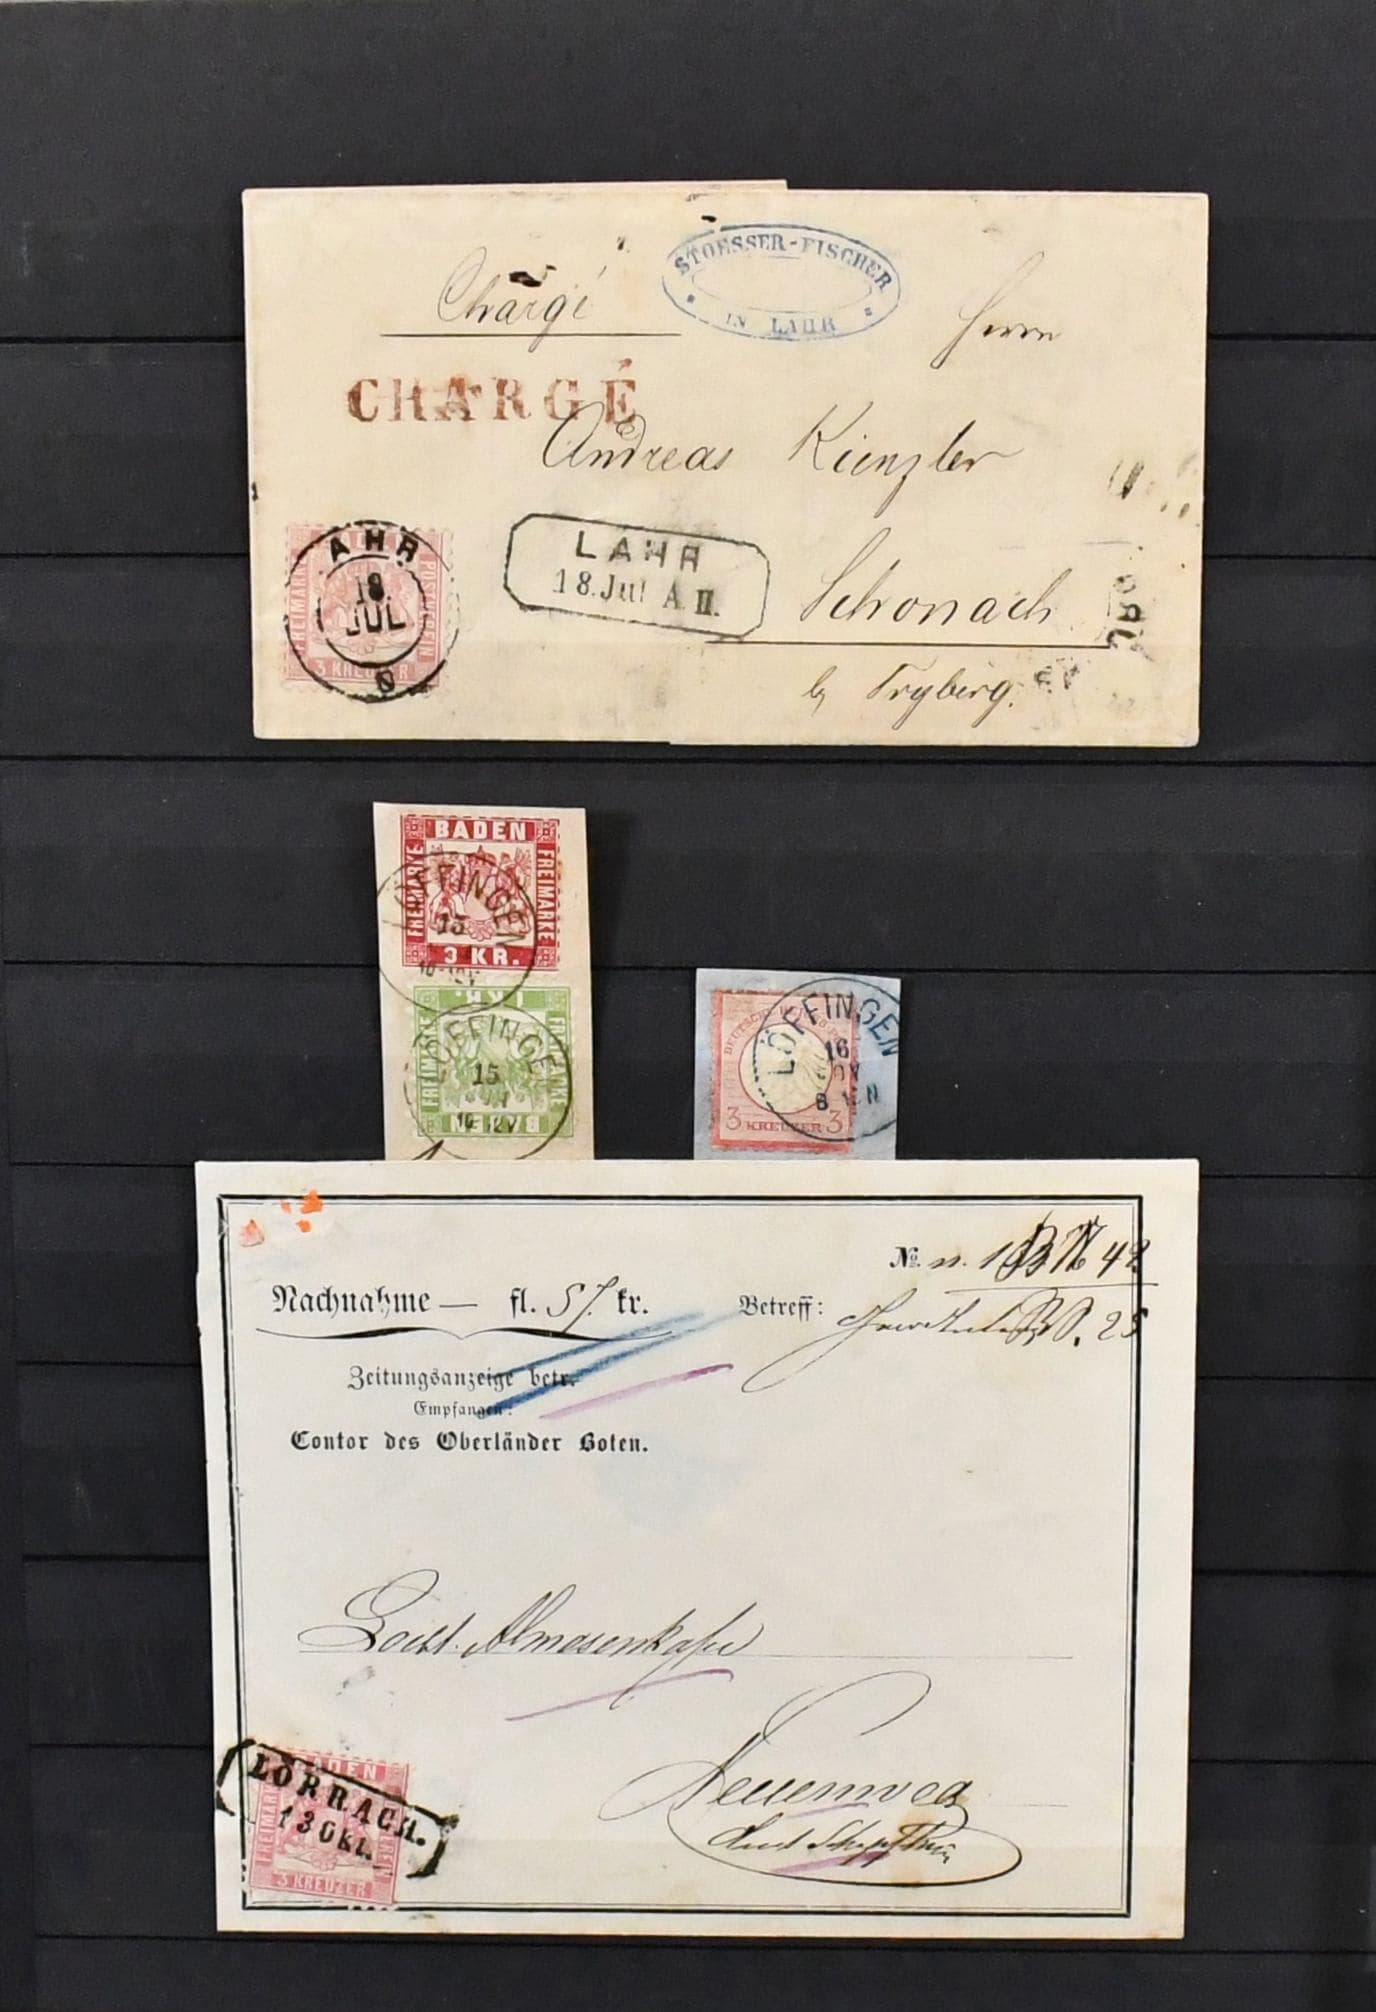 STOESSER-FISCHER
IN LAHR
Chargé
Herrn
CHARGÉ
Andreas Kienzler
AHR
18
JUL
FREIMARKE
POSTVEREIN
3 KREUZER
LAHR
18.Jul A.II.
Schonach
by Tryberg.
BADEN
FREIMARKE
FREIMARKE
3 KR.
LÖFFINGEN
15
10-12V
1 KR.
FREIMARKE
FREIMARKE
BADEN
LÖFFINGEN
15
10-12V
LÖFFINGEN
16
3 KREUZER 3
No. 42
Nachnahme — fl. 57. kr.
Betreff: 25
Zeitungsanzeige betr.
Empfangen:
Contor des Oberländer Boten.
Almosenkasse
Neuenweg
BADEN
FREIMARKE
LÖRRACH.
13 Okt.
3 KREUZER